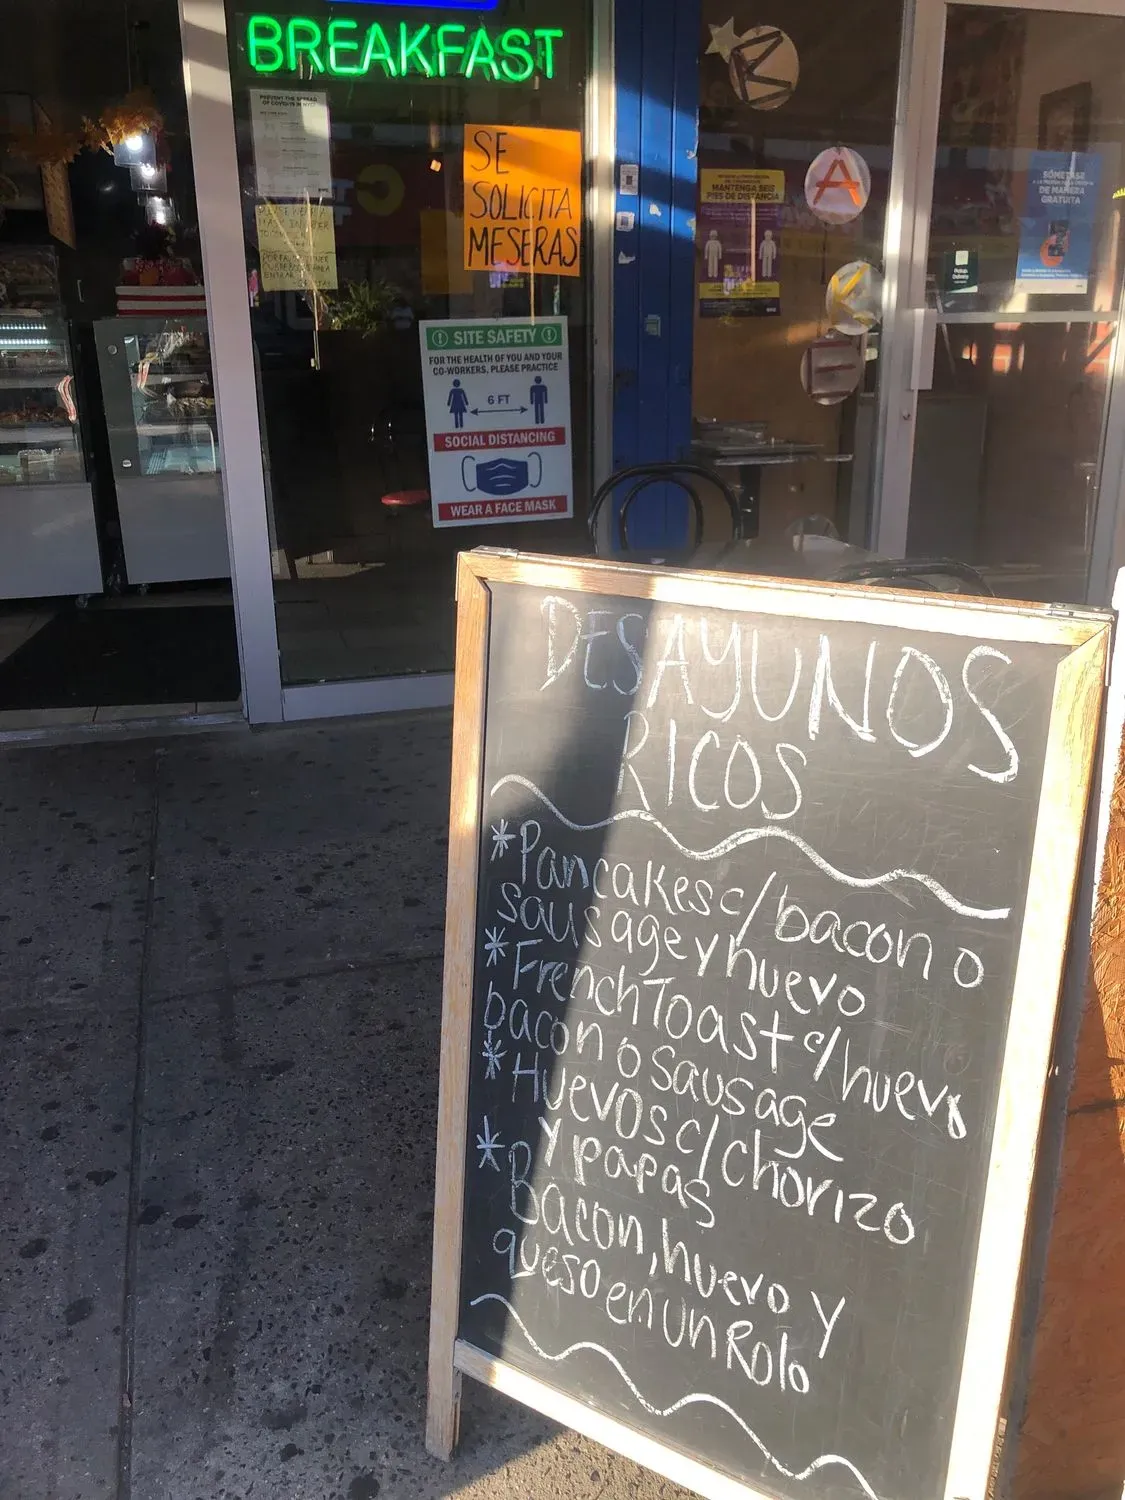 BREAKFAST
PREVENT THE SPREAD
OF COVID-19 IN NYC!
SE
SOLICITA
MESERAS
SITE SAFETY
FOR THE HEALTH OF YOU AND YOUR
CO-WORKERS, PLEASE PRACTICE
6 FT
SOCIAL DISTANCING
WEAR A FACE MASK
MANTENGA SEIS
PIES DE DISTANCIA
A
K
E
SÓMETASE
DE MANERA
GRATUITA
DESAYUNOS
RICOS
*Pancakes c/bacon o
sausage y huevo
*French Toast c/huevo
bacon o sausage
*Huevos c/chorizo
y papas
*Bacon, huevo y
queso en un Rolo